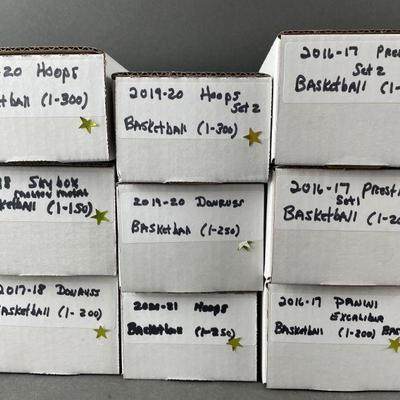 -20 Hoops
tball (1-300)
2019-20 Hoops
Set 2
Basketball (1-300)
2016-17 Pres
Set 2
Basketball (1-
98 Skybox
Molten Metal
ketball (1-150)
2019-20 Donruss
Basketball (1-250)
2016-17 Presti
Set 1
Basketball (1-20
2017-18 Donruss
Basketball (1-200)
2020-21 Hoops
Basketball (1-250)
2016-17 Panini
Excalibur
Basketball (1-200) Bas